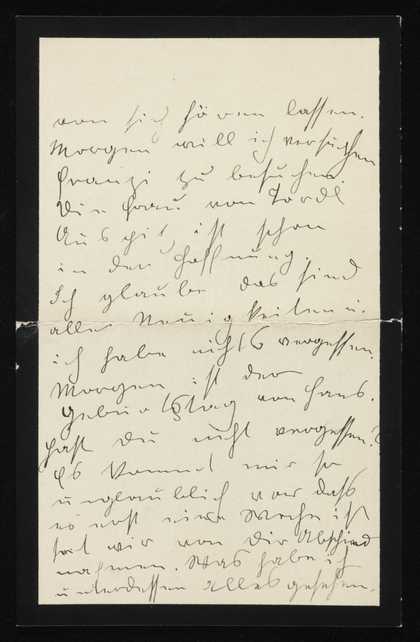 von sich hören lassen.
Morgen will ich versuchen
Franzi zu besuchen.
Die Frau von Jordl
Auspitz ist schon
in der Hoffnung.
Ich glaube das sind
alle Neuigkeiten u.
ich habe nichts vergessen.
Morgen ist der
Geburtstag von Hans.
hast du nicht vergessen?
Es kommt mir so
unglaublich vor dass
es erst eine Woche ist
seit wir von Dir Abschied
nahmen. Was habe ich
unterdessen alles gesehen.